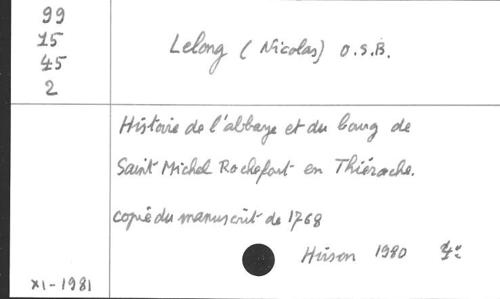 99
15
45
2
Lelong (Nicolas) O.S.B.
Histoire de l'abbaye et du bourg de
Saint Michel Rochefort en Thiérache.
copie du manuscrit de 1768
Hirson 1980 4°
XI-1981